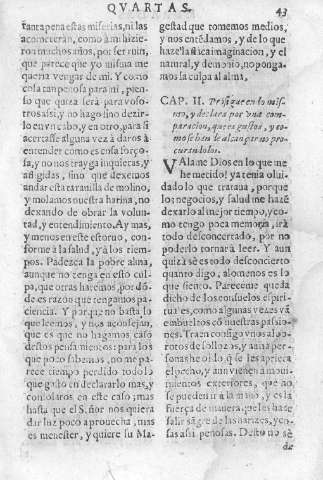 QVARTAS.
43
tanta pena estas miserias, ni las
acometerán, como à mi hizie-
ron muchos años, por ser ruin,
que parece que yo misma me
queria vengar de mi. Y como
cosa tan penosa para mi, pien-
so que quizà serà para voso-
tros assi, y no hago sino dezir-
lo en vn cabo, y en otro, para si
acertasse alguna vez à daros à
entender como es cosa forço-
sa, y no nos trayga inquietas, y
afligidas, sino que dexemos
andar esta tarauilla de molino,
y molamos nuestra harina, no
dexando de obrar la volun-
tad, y entendimiento. Ay mas,
y menos en este estoruo, con-
forme à la salud, y à los tiem-
pos. Padezca la pobre alma,
aunque no tenga en esto cul-
pa, que otras haremos, por dõ-
de es razon que tengamos pa-
ciencia. Y porque no basta lo
que leemos, y nos aconsejan,
que es que no hagamos caso
destos pensamientos; para los
que poco sabemos, no me pa-
rece tiempo perdido todo lo
que gasto en declararlo mas, y
consolaros en este caso; mas
hasta que el Señor nos quiera
dar luz poco aprouecha, mas
es menester, y quiere su Ma-
gestad que tomemos medios,
y nos entẽdamos, y de lo que
haze la flaca imaginacion, y el
natural, y demonio, no ponga-
mos la culpa al alma.
CAP. II. Prosigue en lo mis-
mo, y declara por vna com-
paracion, que es gustos, y co-
mo se han de alcançar no pro-
curandolos.
VAlame Dios en lo que me
he metido! ya tenia olui-
dado lo que trataua, porque
los negocios, y salud me hazẽ
dexarlo al mejor tiempo, y co-
mo tengo poca memoria, irà
todo desconcertado, por no
poderlo tornar à leer. Y aun
quizà se es todo desconcierto
quanto digo, alomenos es lo
que siento. Pareceme queda
dicho de los consuelos espiri-
tuales, como algunas vezes vã
embueltos cõ nuestras passio-
nes. Traen consigo vnos albo-
rotos de sollozos, y aun à per-
sonas he oido q̃ se les aprieta
el pecho, y aun vienen à moui-
mientos exteriores, que no
se pueden ir à la mano, y es la
fuerça de manera, que les haze
salir sãgre de las narizes, y co-
sas assi penosas. Desto no sè
de-